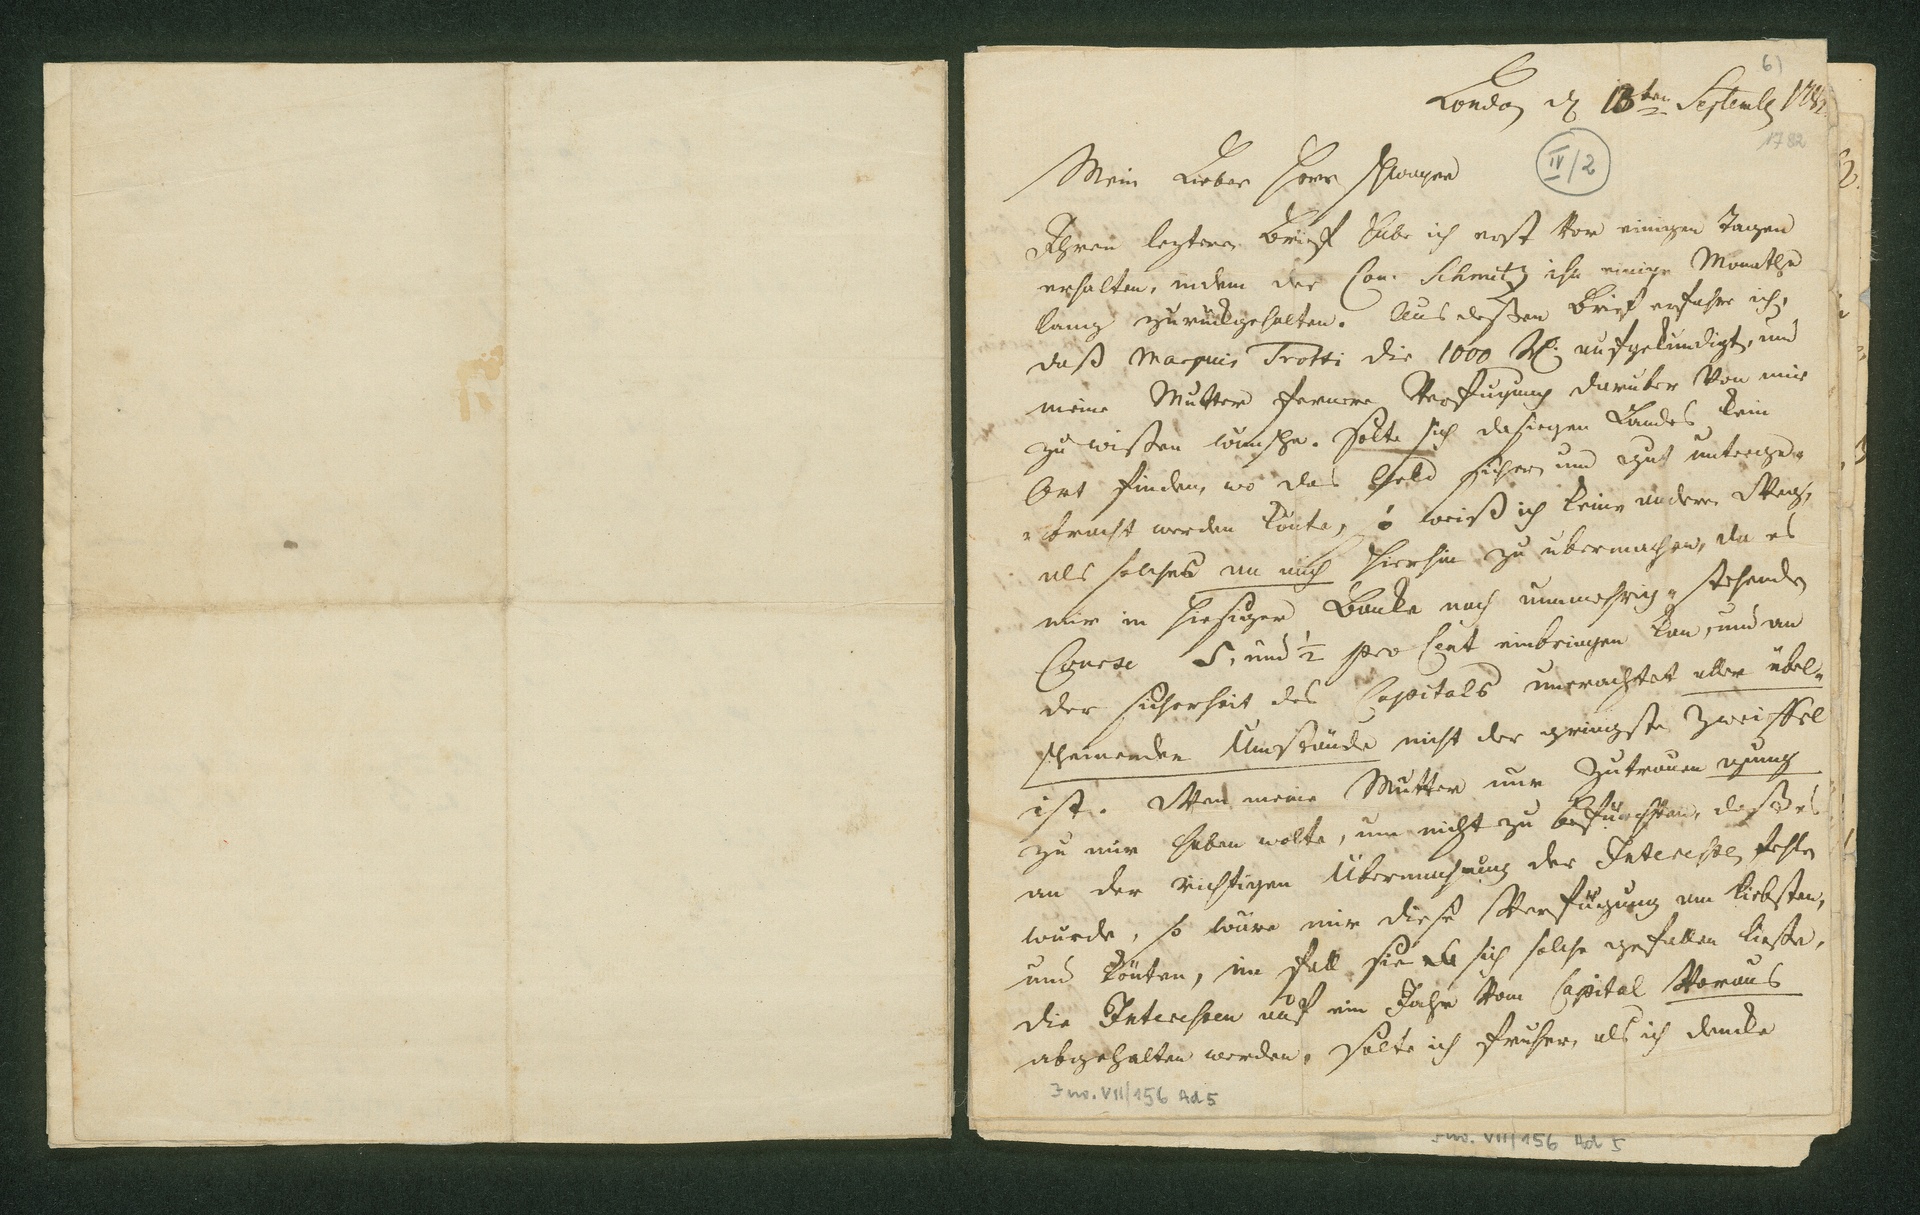 6)
London d. 13ten Septembr 1782
1782
IV/2
Mein Lieber Herr Schwager
Ihren lezteren Brief habe ich erst vor einigen Tagen
erhalten, indem der Can. Schmitz ihn einige Monathe
lang zurückgehalten. Aus deßen Brief erfahre ich,
daß Marquis Trotti die 1000 aufgekündigt, und
meine Mutter fernere Verfugung daruber von mir
zu wißen wunsche. Solte sich dasigen Landes kein
Ort finden, wo das Geld sicher und gut unterge-
bracht werden könte, so weiß ich keinen anderen Weeg,
als solches an mich hierhin zu ubermachen, da es
mir in hiesiger Banke nach nunmehrig stehenden
Course 5, und ½ pro Cent einbringen kan, und an
der sicherheit des Capitals unerachtet aller übel-
scheinenden Umstände nicht der gringste Zweiffel
ist. Wen meine Mutter nur Zutrauen genug
zu mir haben wolte, um nicht zu befürchten, daß es
an der richtigen Übermachung der Interessen fehlen
wurde, so wäre mir diese Verfügung am liebsten,
und könten, im fall sie sich solche gefallen ließe,
die Interessen auf ein Jahr vom Capital Voraus
abgehalten werden, solte ich fruher, als ich dencke
Inv. VII/156 Ad 5
Inv. VII/156 Ad 5